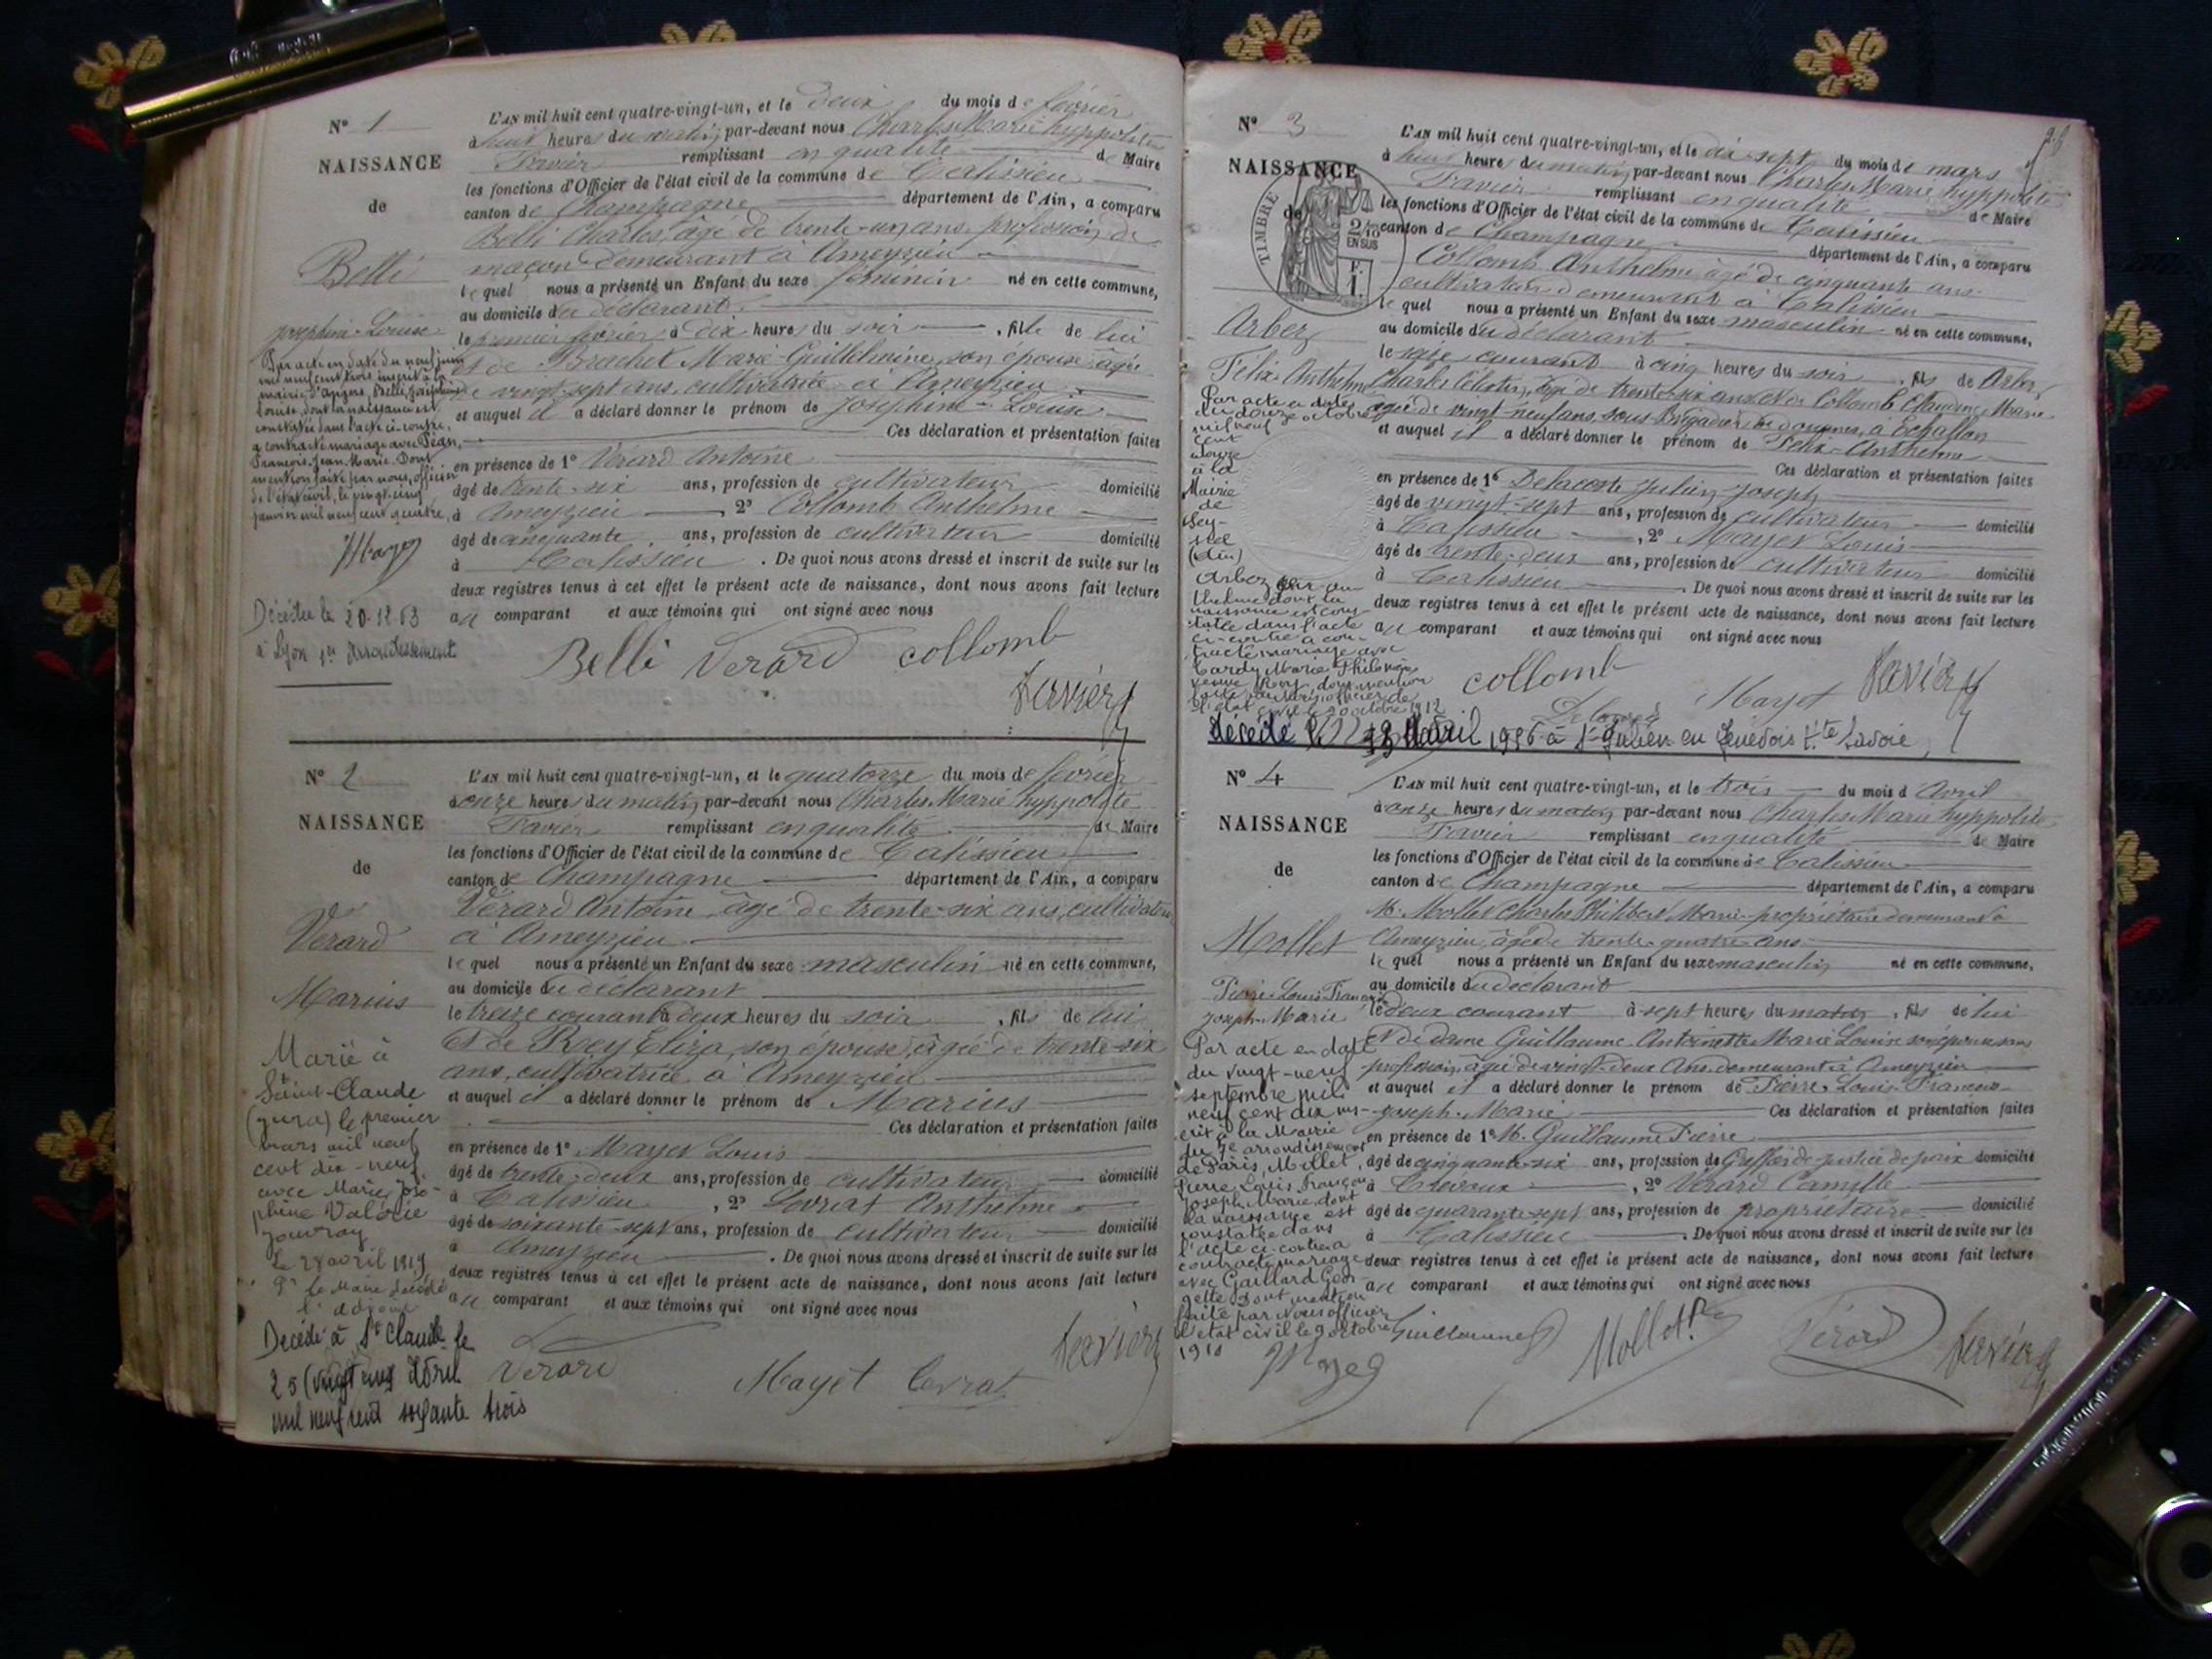 N° 1
NAISSANCE
de
Belli
Joséphine-Louise
Par acte en date du neuf juin
mil neuf cent trois inscrit à la
mairie d'Angers, Belli, Joséphine
Louise, dont la naissance est
constatée dans l'acte ci-contre,
a contracté mariage avec Péan,
François-Jean-Marie. Dont
mention faite par nous, officier
de l'état civil, le vingt-cinq
janvier mil neuf cent quatre.
Décédée le 20-12-63
à Lyon 1er Arrondissement
L'AN mil huit cent quatre-vingt-un, et le deux du mois de février
à huit heures du matin, par-devant nous Charles Marie hyppolite
Favier remplissant en qualité de Maire
les fonctions d'Officier de l'état civil de la commune de Talissieu
canton de Champagne département de l'Ain, a comparu
Belli Charles, âgé de trente-un ans, profession de
maçon demeurant à Ameyzieu
lequel nous a présenté un Enfant du sexe féminin né en cette commune,
au domicile du déclarant
le premier février à dix heures du soir, fille de lui
et de Brachet Marie-Guillelmine, son épouse âgée
de vingt-sept ans, cultivatrice à Ameyzieu
et auquel il a déclaré donner le prénom de Joséphine-Louise
Ces déclaration et présentation faites
en présence de 1° Vérard Antoine
âgé de trente-six ans, profession de cultivateur domicilié
à Ameyzieu, 2° Collomb Anthelme
âgé de cinquante ans, profession de cultivateur domicilié
à Talissieu. De quoi nous avons dressé et inscrit de suite sur les
deux registres tenus à cet effet le présent acte de naissance, dont nous avons fait lecture
au comparant et aux témoins qui ont signé avec nous
Belli Verard collomb
favier
N° 2
NAISSANCE
de
Vérard
Marius
Marié à
Saint-Claude
(Jura) le premier
mars mil neuf
cent dix-neuf
avec Marie José-
phine Valérie
Jouvray
Le 28 avril 1919
Pr le Maire
l'adjoint
Décédé à St Claude le
25 (vingt cinq Avril
mil neuf cent soixante trois
L'AN mil huit cent quatre-vingt-un, et le quatorze du mois de février
à onze heures du matin, par-devant nous Charles Marie hyppolite
Favier remplissant en qualité de Maire
les fonctions d'Officier de l'état civil de la commune de Talissieu
canton de Champagne département de l'Ain, a comparu
Vérard Antoine âgé de trente-six ans, cultivateur
à Ameyzieu
lequel nous a présenté un Enfant du sexe masculin né en cette commune,
au domicile du déclarant
le treize courant à deux heures du soir, fils de lui
et de Rey Eliza, son épouse, âgée de trente-six
ans, cultivatrice à Ameyzieu
et auquel il a déclaré donner le prénom de Marius
Ces déclaration et présentation faites
en présence de 1° Mayet Louis
âgé de trente-deux ans, profession de cultivateur domicilié
à Talissieu, 2° Anthelme
âgé de soixante-sept ans, profession de cultivateur domicilié
à Ameyzieu. De quoi nous avons dressé et inscrit de suite sur les
deux registres tenus à cet effet le présent acte de naissance, dont nous avons fait lecture
au comparant et aux témoins qui ont signé avec nous
Verard Mayet favier
N° 3
NAISSANCE
de
TIMBRE
2/10 EN SUS
F. 1.
Arbez
Félix Anthelme
Par acte en date
du douze octobre
mil neuf
cent
douze
à la
Mairie
de
Sey-
ssel
(Ain)
Arbez Félix An
thelme dont la
naissance est cons-
tatée dans l'acte
ci-contre a con-
tracté mariage avec
Cardy Marie Philomène
dont mention
faite par nous officier de
l'état civil le 20 octobre 1912
L'AN mil huit cent quatre-vingt-un, et le dix-sept du mois de mars
à huit heures du matin, par-devant nous Charles Marie hyppolite
Favier remplissant en qualité de Maire
les fonctions d'Officier de l'état civil de la commune de Talissieu
canton de Champagne département de l'Ain, a comparu
Collomb Anthelme âgé de cinquante ans
cultivateur demeurant à Talissieu
lequel nous a présenté un Enfant du sexe masculin né en cette commune,
au domicile du déclarant
le seize courant à cinq heures du soir, fils de Arbez
Charles Célestin, âgé de trente-six ans et de Collomb Claudine Marie
âgée de vingt-neuf ans, sous Brigadier de douanes, à Echallon
et auquel il a déclaré donner le prénom de Félix-Anthelme
Ces déclaration et présentation faites
en présence de 1° Delacoste Julien Joseph
âgé de vingt-sept ans, profession de cultivateur domicilié
à Talissieu, 2° Mayet Louis
âgé de trente-deux ans, profession de cultivateur domicilié
à Talissieu. De quoi nous avons dressé et inscrit de suite sur les
deux registres tenus à cet effet le présent acte de naissance, dont nous avons fait lecture
au comparant et aux témoins qui ont signé avec nous
collomb Mayet favier
décédé Avril 1956 à St Julien en Genevois Hte Savoie
N° 4
NAISSANCE
de
Mollet
Pierre-Louis François
Joseph-Marie
Par acte en date
du vingt-neuf
septembre mil
neuf cent dix ins-
crit à la Mairie
du 7e arrondissement
de Paris, Mollet,
Pierre Louis François
Joseph Marie dont
la naissance est
constatée dans
l'acte ci-contre a
contracté mariage
avec Gaillard Geor-
gette Dont mention
faite par nous officier
d'état civil le 9 octobre
1910
L'AN mil huit cent quatre-vingt-un, et le trois du mois d'Avril
à onze heures du matin par-devant nous Charles Marie hyppolite
Favier remplissant en qualité de Maire
les fonctions d'Officier de l'état civil de la commune de Talissieu
canton de Champagne département de l'Ain, a comparu
M. Mollet Charles Philibert Marie propriétaire demeurant à
Ameyzieu, âgé de trente-quatre ans
lequel nous a présenté un Enfant du sexe masculin né en cette commune,
au domicile du déclarant
le deux courant à sept heures du matin, fils de lui
et de dame Guillaume Antoinette Marie Louise son épouse sans
profession, âgée de vingt-deux Ans, demeurant à Ameyzieu
et auquel il a déclaré donner le prénom de Pierre-Louis-François-
Joseph-Marie Ces déclaration et présentation faites
en présence de 1° M. Guillaume Pierre
âgé de cinquante-six ans, profession de Greffier de justice de paix domicilié
à, 2° Vérard Camille
âgé de quarante-sept ans, profession de propriétaire domicilié
à Talissieu. De quoi nous avons dressé et inscrit de suite sur les
deux registres tenus à cet effet le présent acte de naissance, dont nous avons fait lecture
au comparant et aux témoins qui ont signé avec nous
Guillaume Mollet Vérard favier